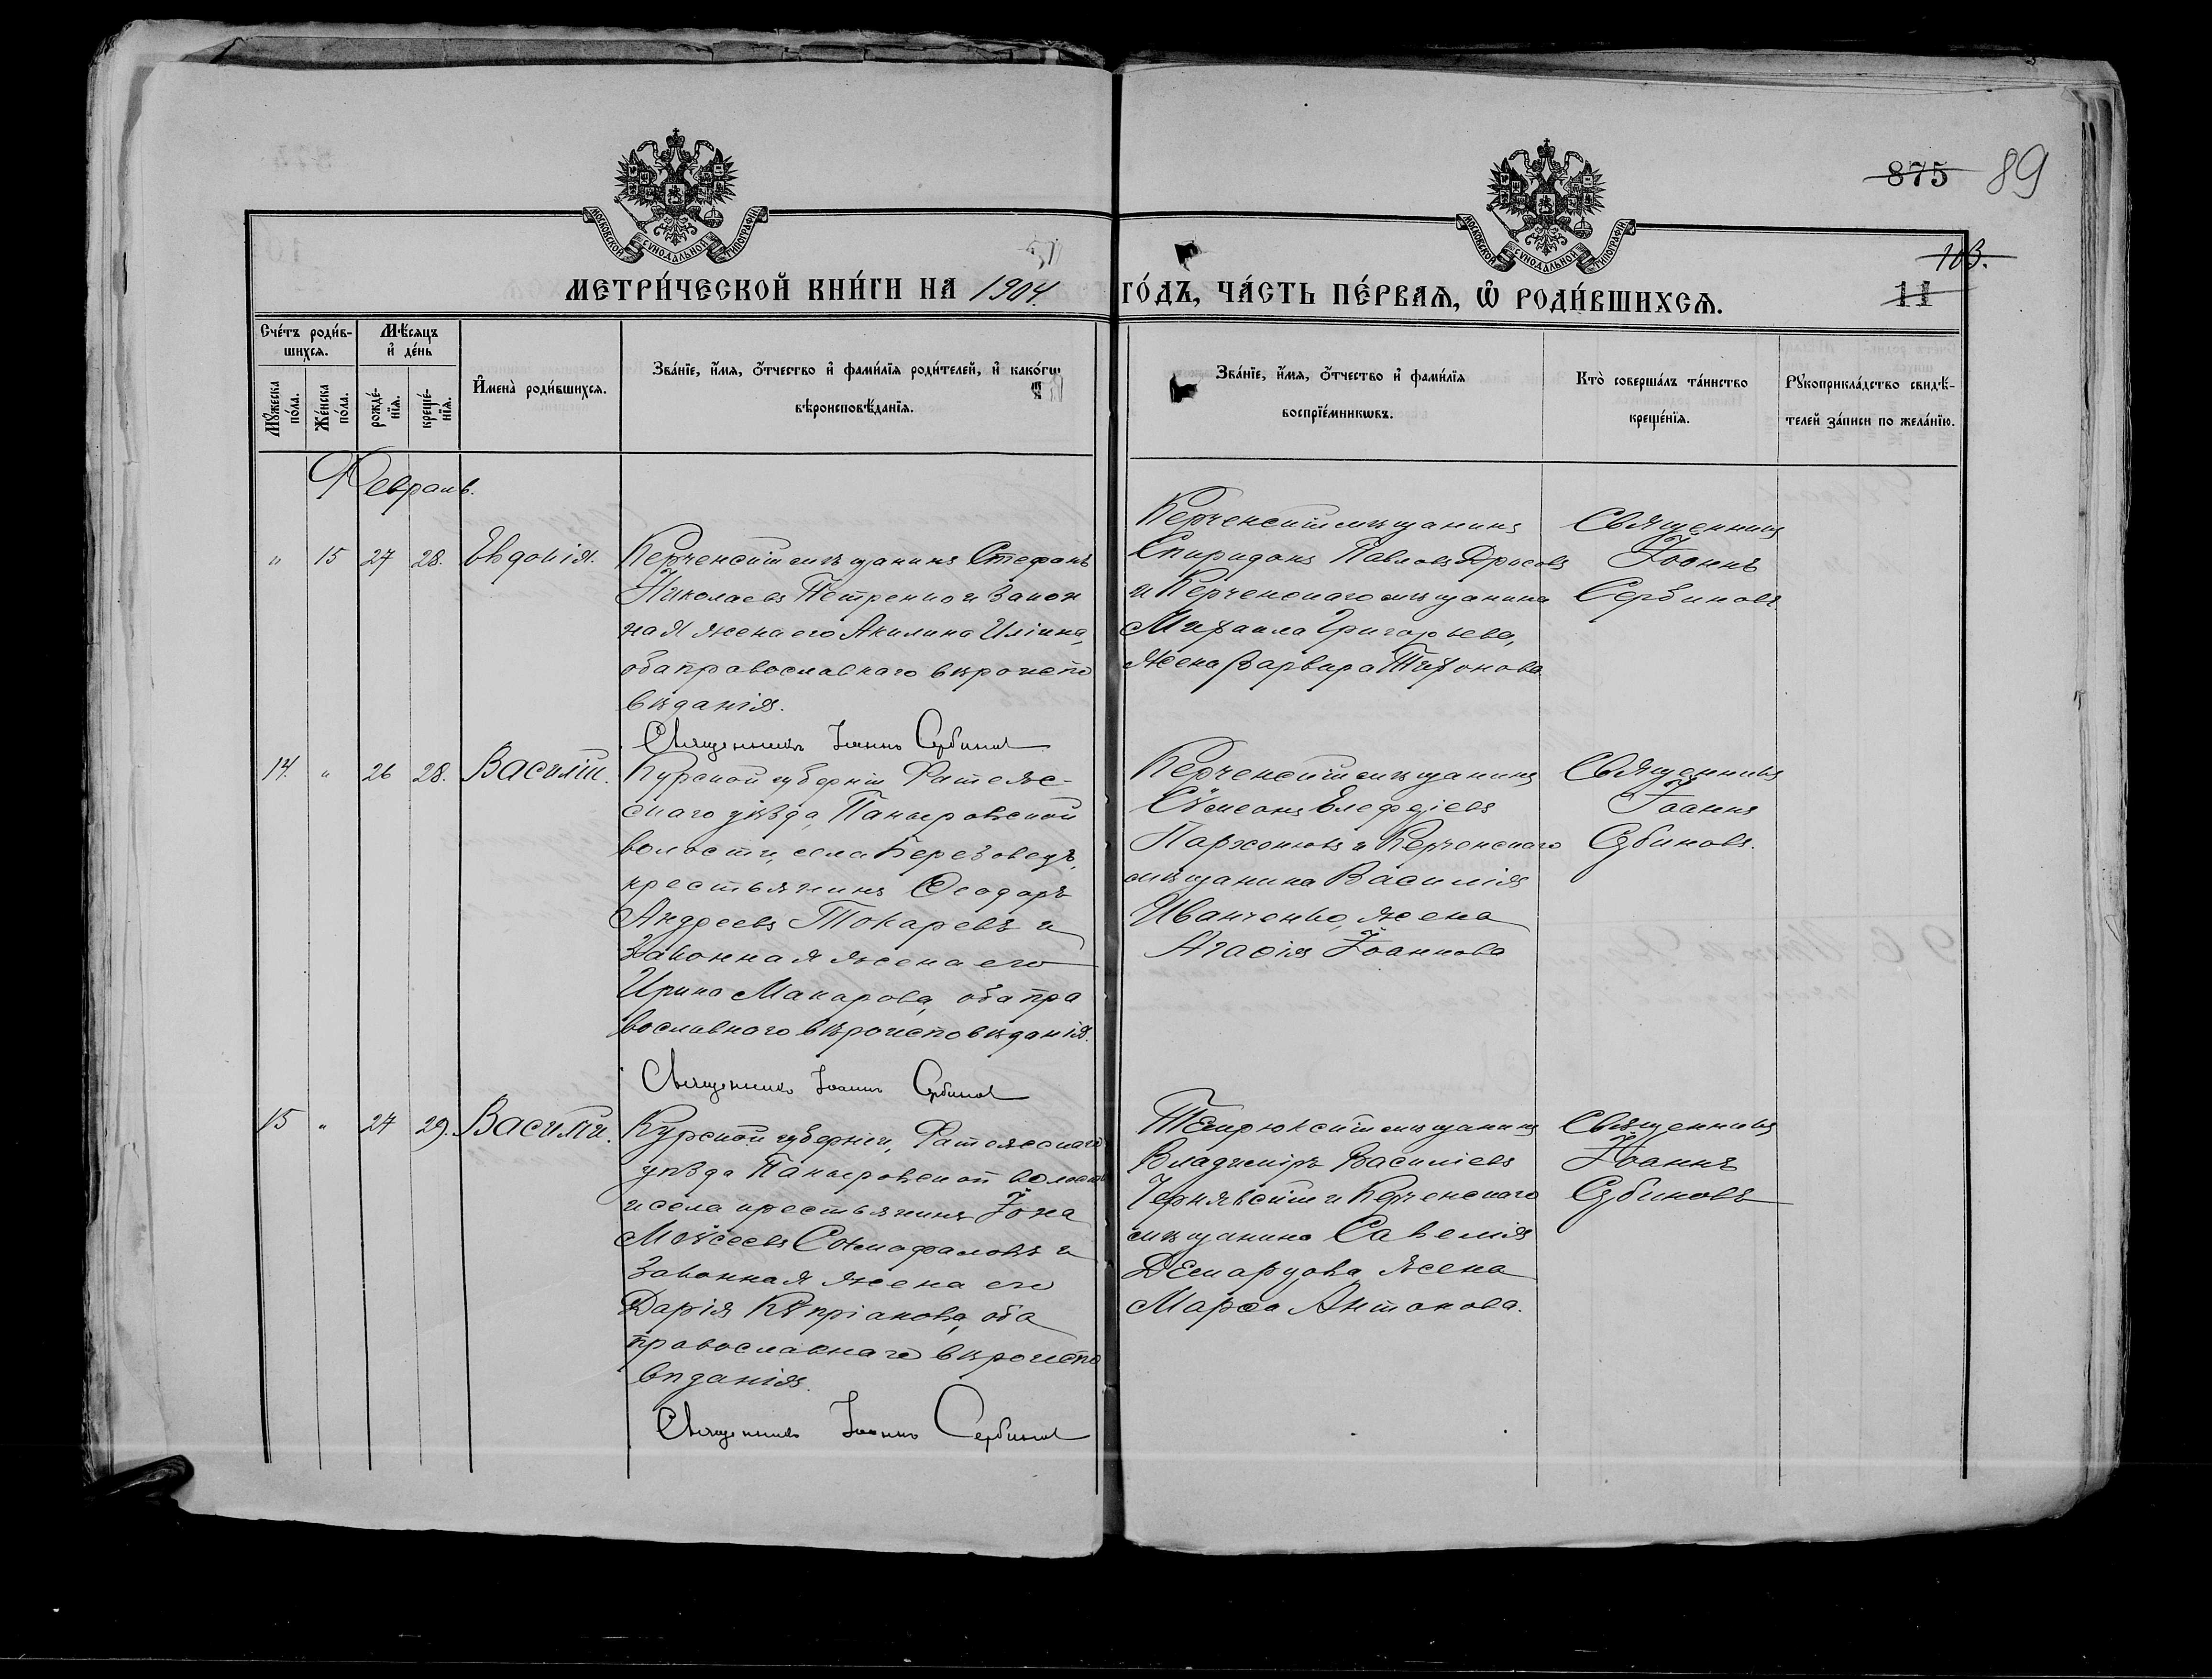 875 89
МОСКОВСКОЙ СѴНОДАЛЬНОЙ ТИПОГРАФІИ
МОСКОВСКОЙ СѴНОДАЛЬНОЙ ТИПОГРАФІИ
103.
МЕТРИ́ЧЕСКОЙ КНИ́ГИ НА 1904. ГО́ДЪ, ЧА́СТЬ ПЕ́РВАѦ, Ѡ҆ РОДИ́ВШИХСѦ.
11
Сче́тъ роди́в-
шихсѧ.
Мѣ́сѧцъ
и҆ де́нь
Мꙋ́жеска
по́ла.
Же́нска
по́ла.
рожде́-
нїѧ.
креще́-
нїѧ.
И҆мена̀ роди́вшихсѧ.
Зва́нїе, и҆́мѧ, ѻ҆́тчество и҆ фами́лїѧ роди́телей, и҆ како́гѡ
вѣроисповѣ́данїѧ.
Зва́нїе, и҆́мѧ, ѻ҆́тчество и҆ фами́лїѧ
воспрїе́мникѡвъ.
Кто̀ соверша́лъ та́инство
креще́нїѧ.
Рꙋкоприкла́дство свидѣ́-
телей за́писи по жела́нїю.
Февраль.
" 15 27 28. Евдокія.
Керченскій мѣщанинъ Стефанъ
Николаевъ Петренко и Закон
ная жена его Акилина Иліина,
оба православнаго вѣроиспо
вѣданія.
Священникъ Іоаннъ Сербинов
Керченскій мѣщанинъ
Спиридонъ Павловъ
и Керченскаго мѣщанина
Михаила Григорьева,
жена Варвара Тихонова
Священникъ
Іоаннъ
Сербиновъ
14. " 26 28. Василій.
Курской губерніи Фатежс-
скаго уѣзда, Паньеровской
волости, села Березовецъ,
крестьянинъ Ѳеодоръ
Андреевъ Токаревъ и
Законная жена его
Ирина Макарова, оба пра
вославнаго вѣроисповѣданія.
Священникъ Іоаннъ Сербинов
Керченскій мѣщанинъ
Сѵмеонъ
и Керченскаго
мѣщанина Василія
Иванченко, жена
Агаѳія Іоаннова
Священникъ
Іоаннъ
Сербиновъ.
15 " 27 29. Василій.
Курской губерніи, Фатежскаго
уѣзда Паньеровской волост
и села крестьянинъ Іона
Моѵсеевъ и
Законная жена его
Дарія Кѵпріанова, оба
православнаго вѣроиспо
вѣданія.
Священникъ Іоаннъ Сербинов
Темрюкскій мѣщанинъ
Владиміръ Василіевъ
Чернявскій и Керченскаго
мѣщанина Савелія
жена
Марѳа Антонова.
Священникъ
Іоаннъ
Сербиновъ